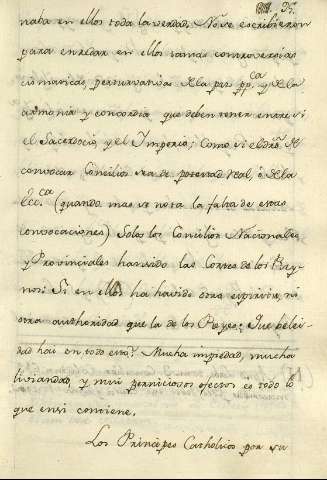 25.
naba en ellos toda la verdad. No se escribieron
para enredar en ellos tantas controversias
cismaticas, perturvativas de la paz pp.ca y de la
armonia y concordia que deben tener entre si
el Sacerdocio, y el Imperio: Como si el dro. de
convocar Concilios era de potestad real, ó de la
Ecc.ca (quando mas se nota la falta de estas
convocaciones) Solo los Concilios Nacionales
y Provinciales han sido las Cortes de los Rey-
nos: Si en ellos ha havido otro espiritu, ni
otra authoridad que la de los Reyes: Que
dad hai en todo esto? Mucha impiedad, mucha
liviandad, y mui perniciosos efectos es todo lo
que ensi contiene.
Los Principes Catholicos por su